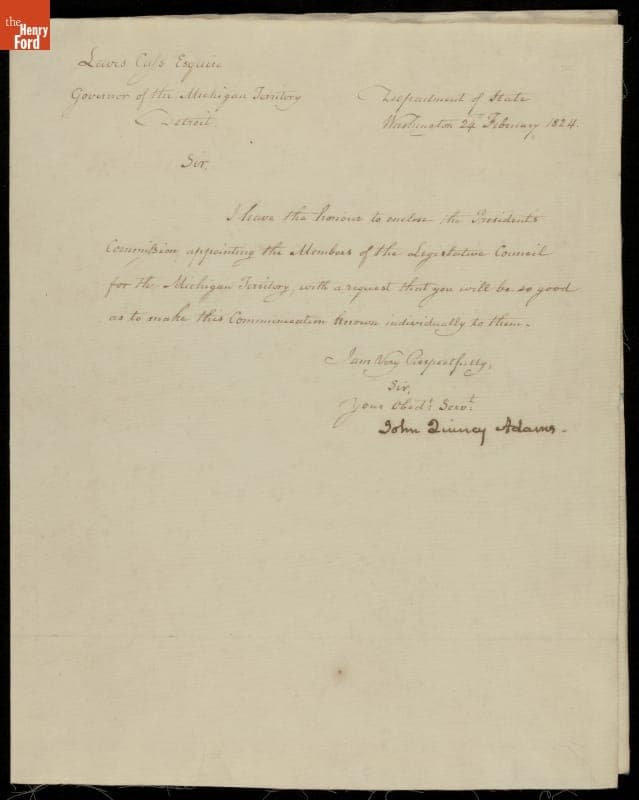 the
Henry
Ford
Lewis Cass Esquire
Governor of the Michigan Territory
Detroit.
Department of State
Washington 24 February, 1824.
Sir,
I have the honour to enclose the President's
Commission, appointing the Members of the Legislative Council
for the Michigan Territory, with a request that you will be so good
as to make this Communication known individually to them.
I am Very Respectfully,
Sir,
Your Obedt. Servt.
John Quincy Adams.